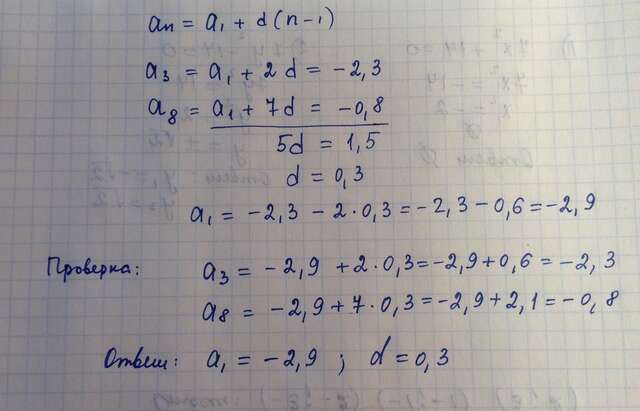 an = a₁ + d(n-1)
a₃ = a₁ + 2d = -2,3
a₈ = a₁ + 7d = -0,8
5d = 1,5
d = 0,3
a₁ = -2,3 - 2·0,3 = -2,3 - 0,6 = -2,9
Проверка: a₃ = -2,9 + 2·0,3 = -2,9 + 0,6 = -2,3
a₈ = -2,9 + 7·0,3 = -2,9 + 2,1 = -0,8
Ответ: a₁ = -2,9 ; d = 0,3